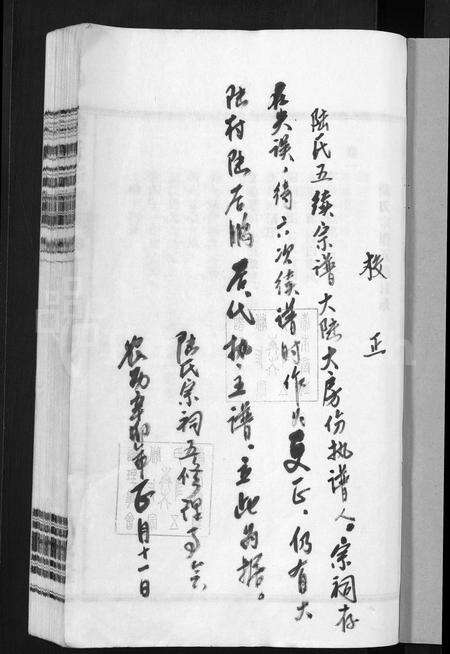 校正
陆氏五续宗谱大陆大房份执谱人。宗祠存
在失误，待六次续谱时作为更正，仍有大
陆村陆后 后代执主谱。立此为据。
陆氏宗祠五修理事会
农历辛卯年正月十一日